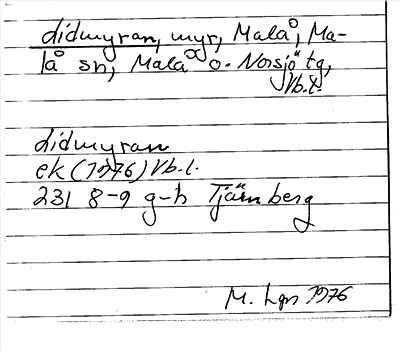 Lidmyran, myr, Malå, Ma-
lå sn, Malå o. Norsjö tg,
Vb.l.
Lidmyran
ek (1976) Vb.l.
23I 8-9 g-h Tjärnberg
M. Lgn 1976